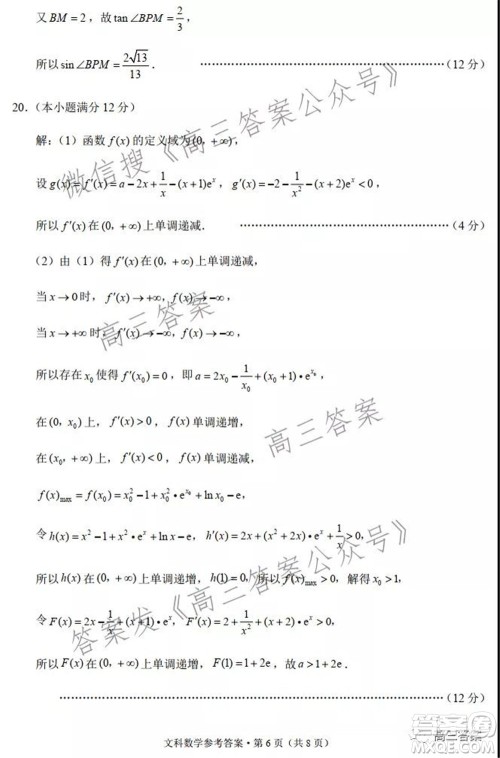 又 BM = 2，故 tan∠BPM = 2/3，
所以 sin∠BPM = 2√13/13．……………………………………（12 分）
20.（本小题满分 12 分）
解：（1）函数 f(x) 的定义域为 (0，+∞)，
设 g(x) = f′(x) = a − 2x + 1/x − (x+1)eˣ，g′(x) = −2 − 1/x² − (x+2)eˣ < 0，
所以 f′(x) 在 (0，+∞) 上单调递减．……………………………………（4 分）
（2）由（1）得 f′(x) 在 (0，+∞) 上单调递减，
当 x → 0 时，f′(x) → +∞，f(x) → −∞，
当 x → +∞ 时，f′(x) → −∞，f(x) → −∞，
所以存在 x₀ 使得 f′(x₀) = 0，即 a = 2x₀ − 1/x₀ + (x₀+1)•e^(x₀)，
在 (0，x₀) 上，f′(x) > 0，f(x) 单调递增，
在 (x₀，+∞) 上，f′(x) < 0，f(x) 单调递减，
f(x)max = f(x₀) = x₀² − 1 + x₀²•e^(x₀) + ln x₀ − e，
令 h(x) = x² − 1 + x²•eˣ + ln x − e，h′(x) = 2x + (x²+2x)•eˣ + 1/x > 0，
所以 h(x) 在 (0，+∞) 上单调递增，h(1) = 0，所以 f(x)max > 0，解得 x₀ > 1，
令 F(x) = 2x − 1/x + (x+1)•eˣ，F′(x) = 2 + 1/x² + (x+2)•eˣ > 0，
所以 F(x) 在 (0，+∞) 上单调递增，F(1) = 1 + 2e，故 a > 1 + 2e．
……………………………………（12 分）
文科数学参考答案 · 第 6 页（共 8 页）
微信搜《高三答案公众号》
高三答案
高三答案
答案发《高三答案公众号》
高三答案
MXQE.COM